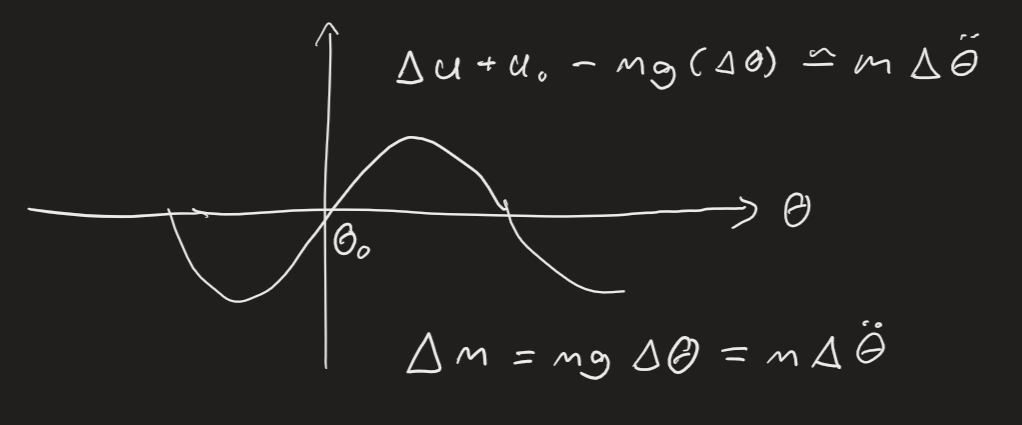 Δu + u₀ - mg(Δθ) ≃ m Δθ̈
θ
θ₀
Δm = mg Δθ = m Δθ̈